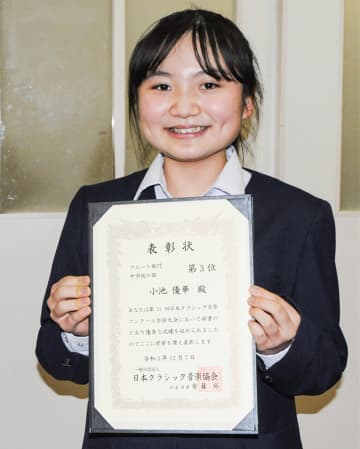 表彰状
フルート部門
中学校の部
第3位
小池 優華 殿
あなたは第31回日本クラシック音楽
コンクール全国大会において頭書の
とおり優秀な成績を収められました
のでここに栄誉を讃え表彰します
令和3年12月7日
一般社団法人
日本クラシック音楽協会